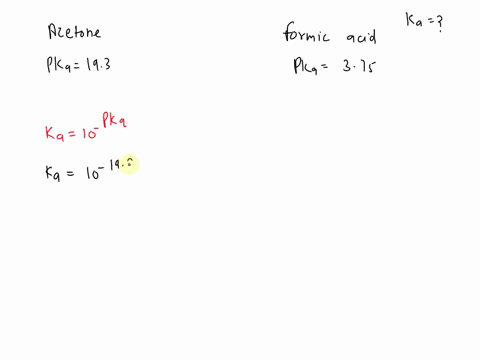 Acetone
PKa = 19.3
formic acid
PKa = 3.75
Ka = ?
Ka = 10^-PKa
Ka = 10^-19.